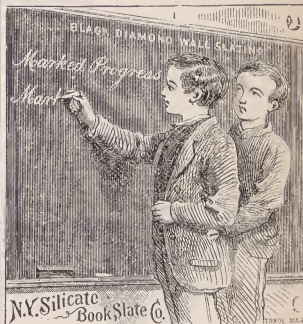 BLACK DIAMOND WALL SLATING
Marked Progress
Mark
N.Y. Silicate
Book Slate Co.
TRADE MA